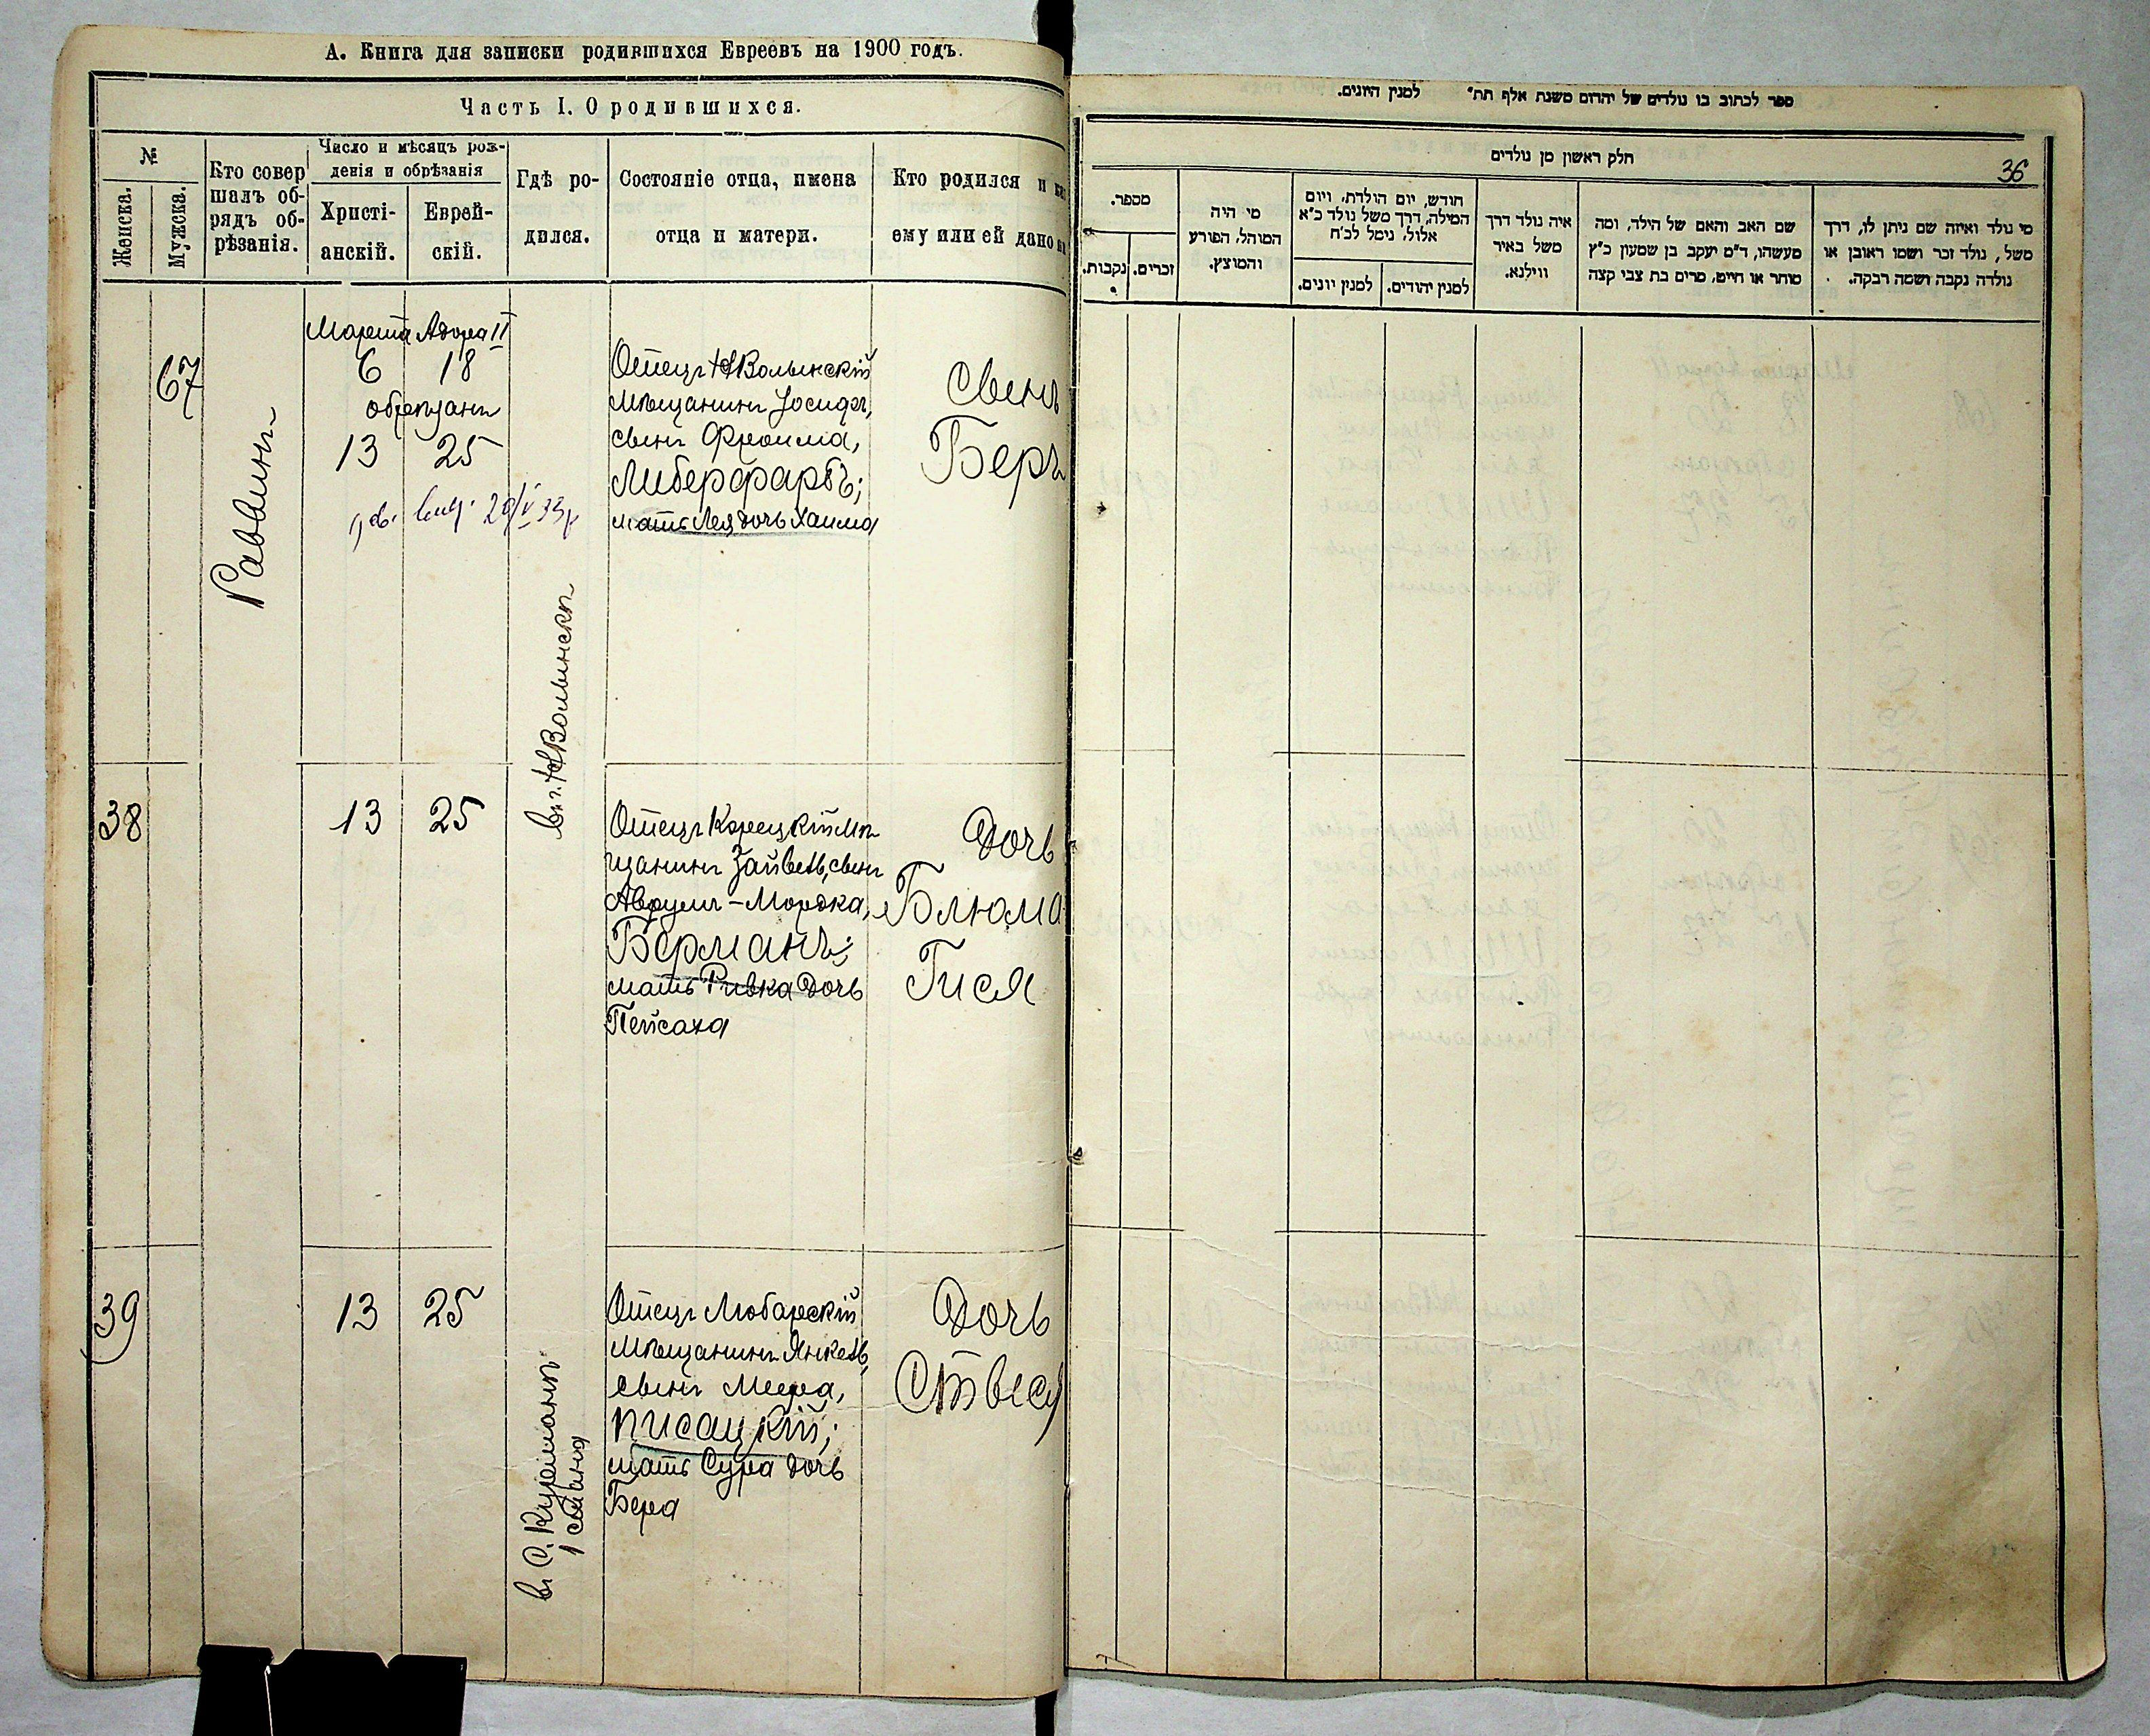 А. Книга для записки родившихся Евреевъ на 1900 годъ.
Часть I. О родившихся.
№
Женска.
Мужска.
Кто совер
шалъ об-
рядъ об-
рѣзанія.
Число и мѣсяцъ рож-
денія и обрѣзанія
Христі-
анскій.
Еврей-
скій.
Гдѣ ро-
дился.
Состояніе отца, имена
отца и матери.
Кто родился и
ему или ей дано
67
Раввинъ
Марта Адора II
6 18
обрезанъ
13 25
29/V 33
в г. НВолынскъ
Отецъ НВолынскій
мѣщанинъ Іосифъ,
сынъ Фроима,
Либерфарбъ;
мать Лея дочь Хаима
Сынъ
Беръ
38
13 25
Отецъ Корецкій мѣ
щанинъ Зайвель, сынъ
Аврумъ-Мордка,
Берманъ;
мать Ривка дочь
Пейсаха
Дочь
Блюма
Гися
39
13 25
в С.
1 стана
Отецъ Любарскій
мѣщанинъ Янкель,
сынъ Меера,
Писацкій;
мать Сура дочь
Бера
Дочь
Ствася
ספר לכתוב בו נולדים של יהדום משנת אלף תת״ למנין היונים.
חלק ראשון מן נולדים
36
מספר.
נקבות.
זכרים.
מי היה
המוהל, הפורע
והמוצץ.
חודש, יום הולדת, ויום
המילה, דרך משל נולד כ״א
אלול, נימל לכ״ח
למנין יונים.
למנין יהודים.
איה נולד דרך
משל באיר
ווילנא.
שם האב והאם של הילד, ומה
מעשהו, ד״מ יעקב בן שמעון כ״ץ
סוחר או חייט, מרים בת צבי קצה
מי נולד ואיזה שם ניתן לו, דרך
משל, נולד זכר ושמו ראובן או
נולדה נקבה ושמה רבקה.